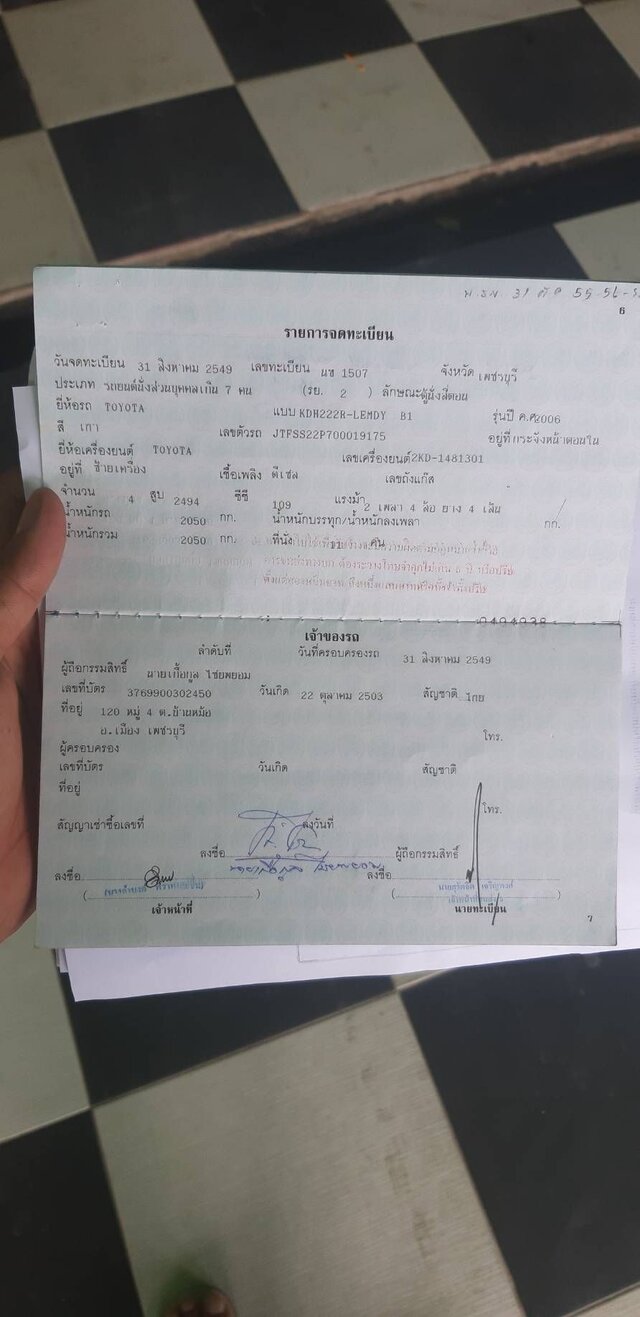 6
รายการจดทะเบียน
วันจดทะเบียน 31 สิงหาคม 2549 เลขทะเบียน นข 1507 จังหวัด เพชรบุรี
ประเภท รถยนต์นั่งส่วนบุคคลเกิน 7 คน (รย. 2 ) ลักษณะตู้นั่งสี่ตอน
ยี่ห้อรถ TOYOTA แบบ KDH222R-LEMDY B1 รุ่นปี ค.ศ2006
สี เทา เลขตัวรถ JTFSS22P700019175 อยู่ที่ กระจังหน้าตอนใน
ยี่ห้อเครื่องยนต์ TOYOTA เลขเครื่องยนต์2KD-1481301
อยู่ที่ ซ้ายเครื่อง เชื้อเพลิง ดีเซล เลขถังแก๊ส
จำนวน 4 สูบ 2494 ซีซี 109 แรงม้า 2 เพลา 4 ล้อ ยาง 4 เส้น
น้ำหนักรถ 2050 กก. น้ำหนักบรรทุก/น้ำหนักลงเพลา กก.
น้ำหนักรวม 2050 กก. ที่นั่ง 11 คน
เจ้าของรถ
ลำดับที่ วันที่ครอบครองรถ 31 สิงหาคม 2549
ผู้ถือกรรมสิทธิ์ นายเกื้อกูล ไชยพยอม
เลขที่บัตร 3769900302450 วันเกิด 22 ตุลาคม 2503 สัญชาติ ไทย
ที่อยู่ 120 หมู่ 4 ต.บ้านหม้อ
อ.เมือง เพชรบุรี โทร.
ผู้ครอบครอง
เลขที่บัตร วันเกิด สัญชาติ
ที่อยู่
โทร.
สัญญาเช่าซื้อเลขที่ ลงวันที่
ลงชื่อ ผู้ถือกรรมสิทธิ์
ลงชื่อ ลงชื่อ
เจ้าหน้าที่ นายทะเบียน
7